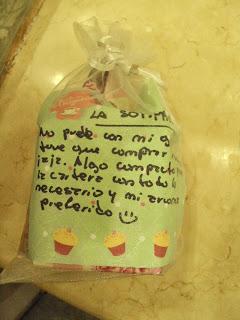 LA SOTM
No pude con mi g
tuve que comprar
jeje. Algo compacto
la cartera con todo l
necesario y mi aroma
preferido